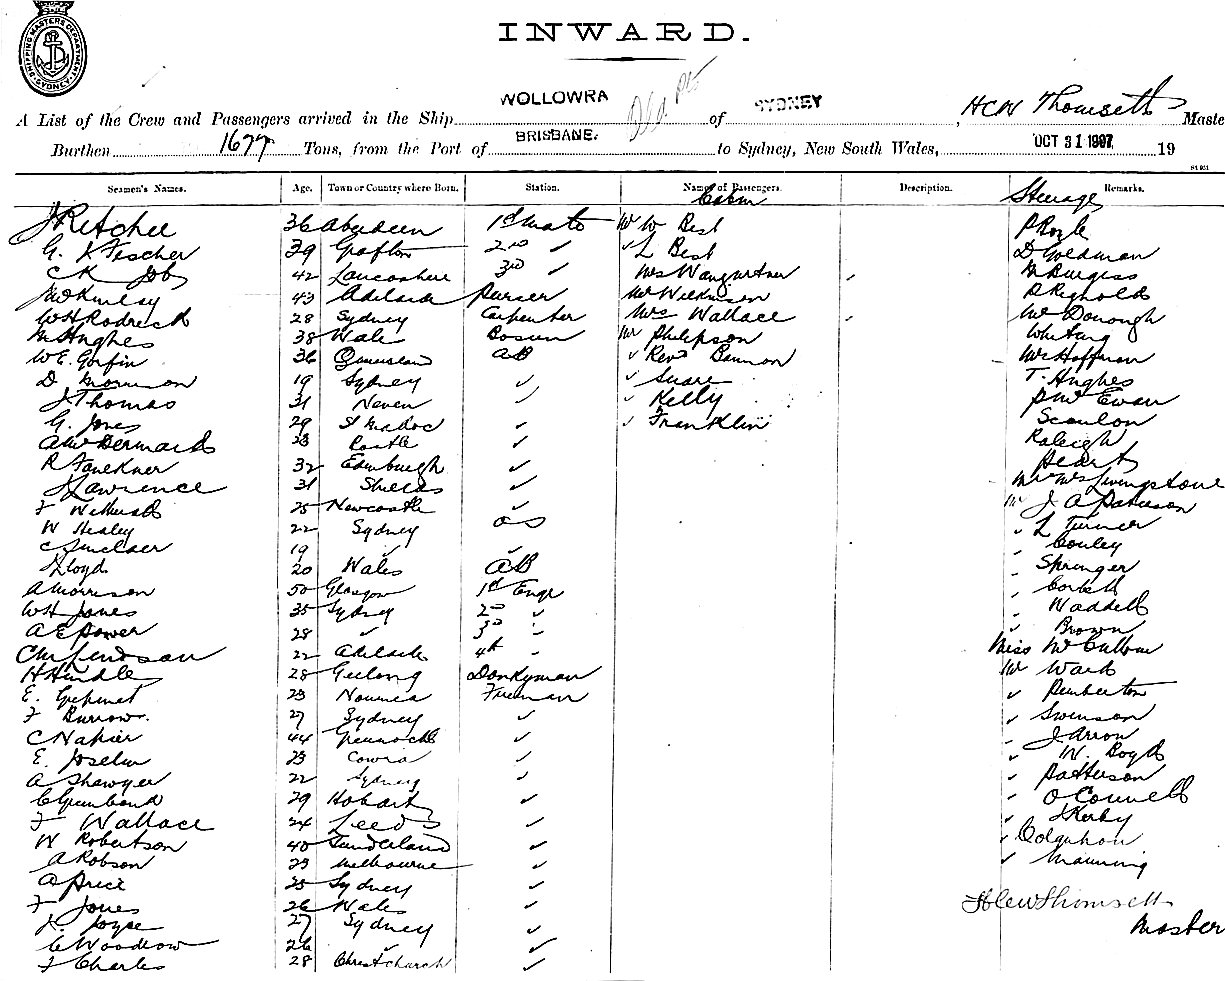 SHIPPING MASTERS DEPARTMENT SYDNEY
INWARD.
A List of the Crew and Passengers arrived in the Ship WOLLOWRA of SYDNEY, HCW Thomsett Maste
Burthen 1677 Tons, from the Port of BRISBANE. to Sydney, New South Wales, OCT 31 1907 19
Seamen's Names. Age. Town or Country where Born. Station. Names of Passengers. Description. Remarks.
Cabin Steerage
J Ritchie 36 Aberdeen 1st Mate Mr W Best P Royle
G. K Fischer 39 Grafton 2nd ✓ ✓ L Best D Goldman
C K Job 42 Lancashire 3rd ✓ Mrs Waugurtner M Burgess
McKinlay 43 Adelaide Purser Mr Wilkinson R Reynolds
WH Rodrick 28 Sydney Carpenter Mrs Wallace McDonough
M Hughes 38 Wales Bosun Mr Philipson Whiting
W.E. Gorfin 36 Queensland AB ✓ Revd Bannon Mrs Hoffman
D Morrison 19 Sydney ✓ ✓ Suare T. Hughes
J Thomas 31 Neven ✓ ✓ Kelly McEwan
G. Jones 29 St Madoc ✓ ✓ Franklin Scanlon
A McDermaid 23 ✓ Raleigh
R Faulkner 32 Edinburgh ✓ Heart
J Lawrence 31 Shields ✓ Mr Mrs Livingstone
F 25 Newcastle ✓ Mr J A Paterson
W Healey 22 Sydney OS ✓ L Turner
C Sinclair 19 ✓ ✓ Couley
Lloyd 20 Wales AB Springer
A Morrison 50 Glasgow 1st Engr Corbett
WH Jones 35 Sydney 2nd Waddell
A E Power 28 ✓ 3rd ✓ Brown
22 Adelaide 4th Miss McCullom
H Hindle 28 Geelong Donkyman Mr Ward
E. 23 Noumea Fireman ✓ Pemberton
F Burrow. 27 Sydney ✓ ✓ Swenson
C Napier 44 Greenock ✓ J Arron
E. Joselin 23 Cowra ✓ W. Boyd
A Shawyer 22 Sydney ✓ Patterson
C Grunbond 29 Hobart ✓ O'Connell
F Wallace 24 Leeds ✓ J Kerby
W Robertson 40 Sunderland ✓ ✓ Colquhon
A Robson 23 Melbourne ✓ ✓ Manning
A Price 25 Sydney ✓
F Jones 26 Wales ✓ HCW Thomsett
J. Joyce 27 Sydney ✓ Master
C Woodlow 26 ✓ ✓
F Charles 28 Christchurch ✓